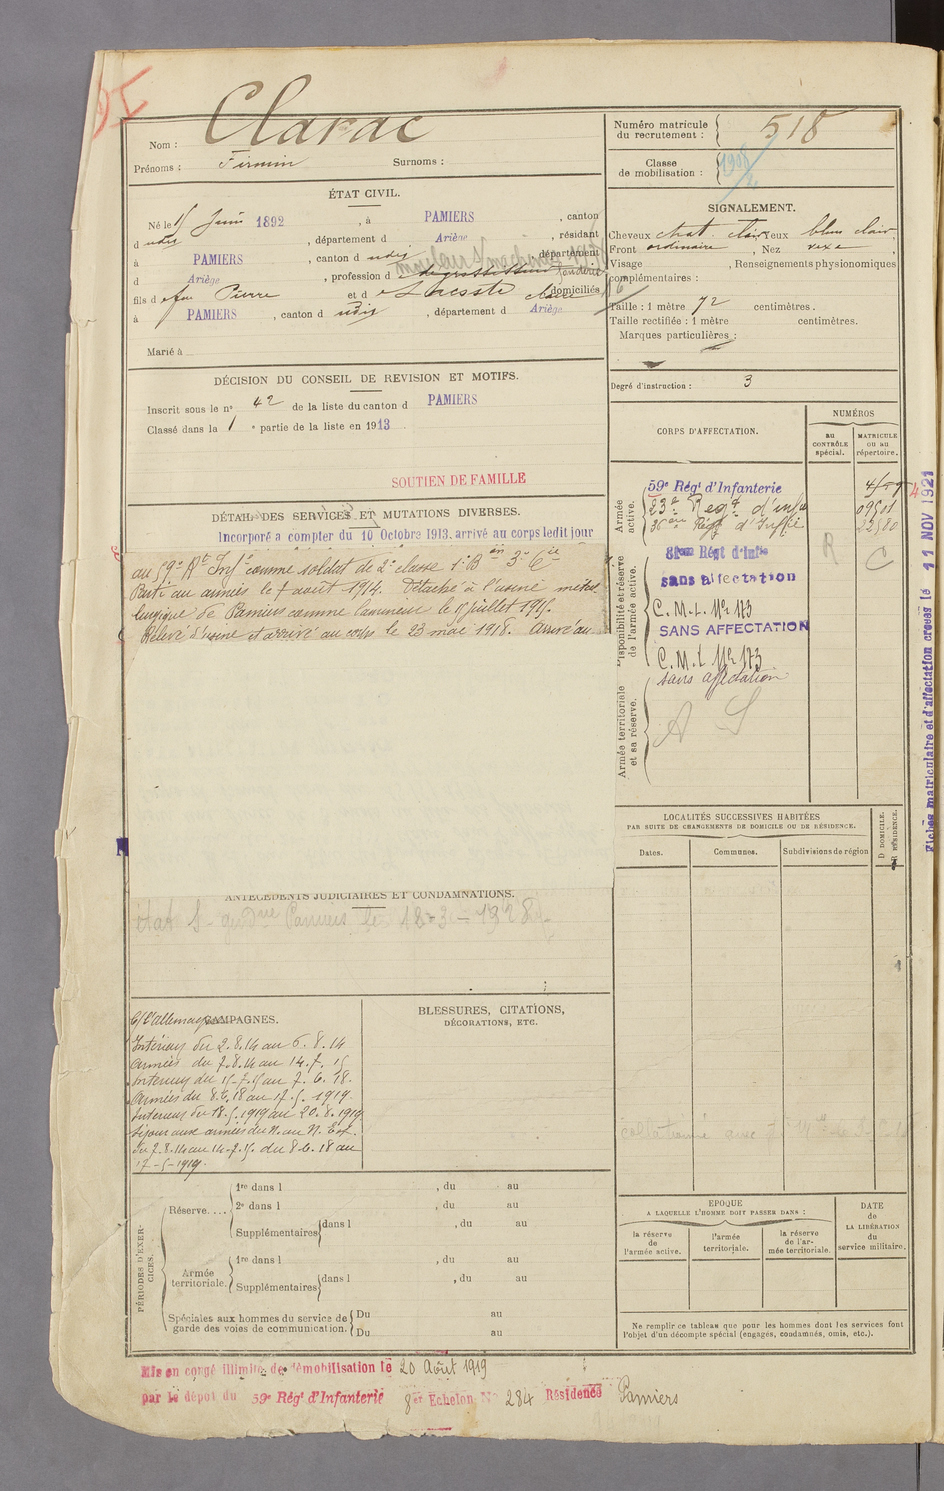 Clarac
Nom :
Prénoms : Firmin Surnoms :
ÉTAT CIVIL.
Né le 15 Juin 1892 , à PAMIERS , canton
d udit , département d Ariège , résidant
à PAMIERS , canton d udit , département
d Ariège , profession d
fils d feu Pierre et d domiciliés
à PAMIERS , canton d udit , département d Ariège
Marié à
DÉCISION DU CONSEIL DE REVISION ET MOTIFS.
Inscrit sous le n° 42 de la liste du canton d PAMIERS
Classé dans la 1 e partie de la liste en 1913
SOUTIEN DE FAMILLE
DÉTAIL DES SERVICES ET MUTATIONS DIVERSES.
Incorporé a compter du 10 Octobre 1913. arrivé au corps ledit jour
au 59e Rt Infie comme soldat de 2e classe 1r Bon 3e Cie
Parti au armées le 7 août 1914. Détaché à l'usine métal
lurgique de Pamiers comme lamineur le 15 juillet 1915.
Relevé d'usine et arrivé au corps le 23 mai 1918. Arrivé au
ANTÉCÉDENTS JUDICIAIRES ET CONDAMNATIONS.
état Pamiers le 12-3-1928
C/ l'allemagne CAMPAGNES.
Intérieur du 2.8.14 au 6.8.14
Armées du 7.8.14 au 14.7.15
Intérieur du 15.7.15 au 7.6.18.
Armées du 8.6.18 au 17.5.1919.
Intérieur du 18.5.1919 au 20.8.1919
Séjour aux armées du N. au N. Est.
du 7.8.14 au 14.7.15. du 8.6.18 au
17-5-1919.
BLESSURES, CITATIONS,
DÉCORATIONS, ETC.
PÉRIODES D'EXERCICES.
Réserve.... 1re dans l , du au
2e dans l , du au
Supplémentaires dans l , du au
Armée territoriale. 1re dans l , du au
Supplémentaires dans l , du au
Spéciales aux hommes du service de Du au
garde des voies de communication. Du au
Mis en congé illimité de démobilisation le 20 Août 1919
par le dépot du 59e Régt d'Infanterie 8e Echelon N° 284 Résidence Pamiers
Numéro matricule
du recrutement : 518
Classe
de mobilisation : 1908/2
SIGNALEMENT.
Cheveux chat. clair Yeux bleu clair
Front ordinaire , Nez vexe
Visage , Renseignements physionomiques
complémentaires :
Taille : 1 mètre 72 centimètres.
Taille rectifiée : 1 mètre centimètres.
Marques particulières :
Degré d'instruction : 3
CORPS D'AFFECTATION.
NUMÉROS
au
CONTRÔLE
spécial.
MATRICULE
ou au
répertoire.
Armée
active.
59e Régt d'Infanterie
23e Regt d'infie 09501
36ème Régt d'Inffie 22580
Disponibilité et réserve
de l'armée active.
R C
sans affectation
C.M.L. No 173
SANS AFFECTATION
C.M.L No 173
Armée territoriale
et sa réserve.
sans affectation
A S
Fiches matriculaire et d'affectation créées le 11 NOV 1921
LOCALITÉS SUCCESSIVES HABITÉES
PAR SUITE DE CHANGEMENTS DE DOMICILE OU DE RÉSIDENCE.
Dates.
Communes.
Subdivisions de région
D DOMICILE.
R RÉSIDENCE.
EPOQUE
A LAQUELLE L'HOMME DOIT PASSER DANS :
la réserve
de
l'armée active.
l'armée
territoriale.
la réserve
de l'ar-
mée territoriale.
DATE
de
LA LIBÉRATION
du
service militaire.
Ne remplir ce tableau que pour les hommes dont les services font
l'objet d'un décompte spécial (engagés, condamnés, omis, etc.).